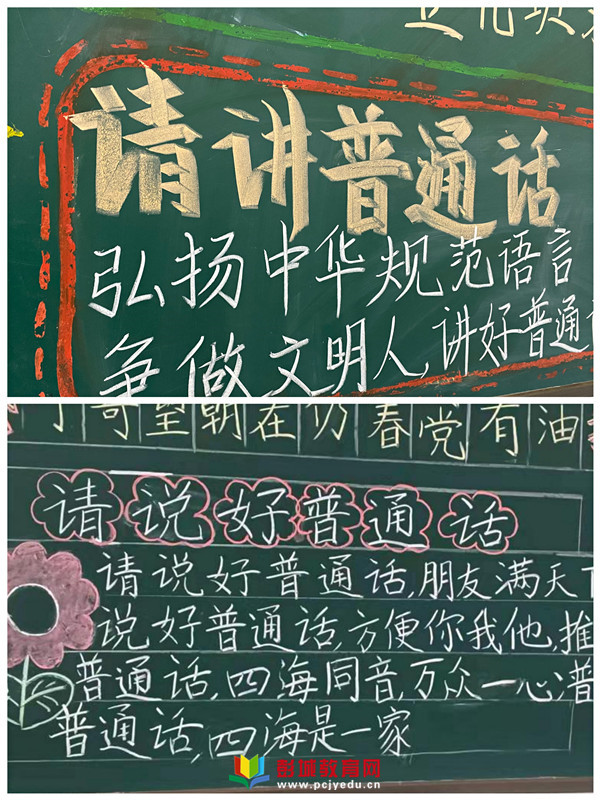 请讲普通话
弘扬中华规范语言
争做文明人,讲好普通
请说好普通话
请说好普通话,朋友满天下
说好普通话,方便你我他,推
普通话,四海同音,万众一心,普
普通话,四海是一家
彭城教育网
www.pcjyedu.cn